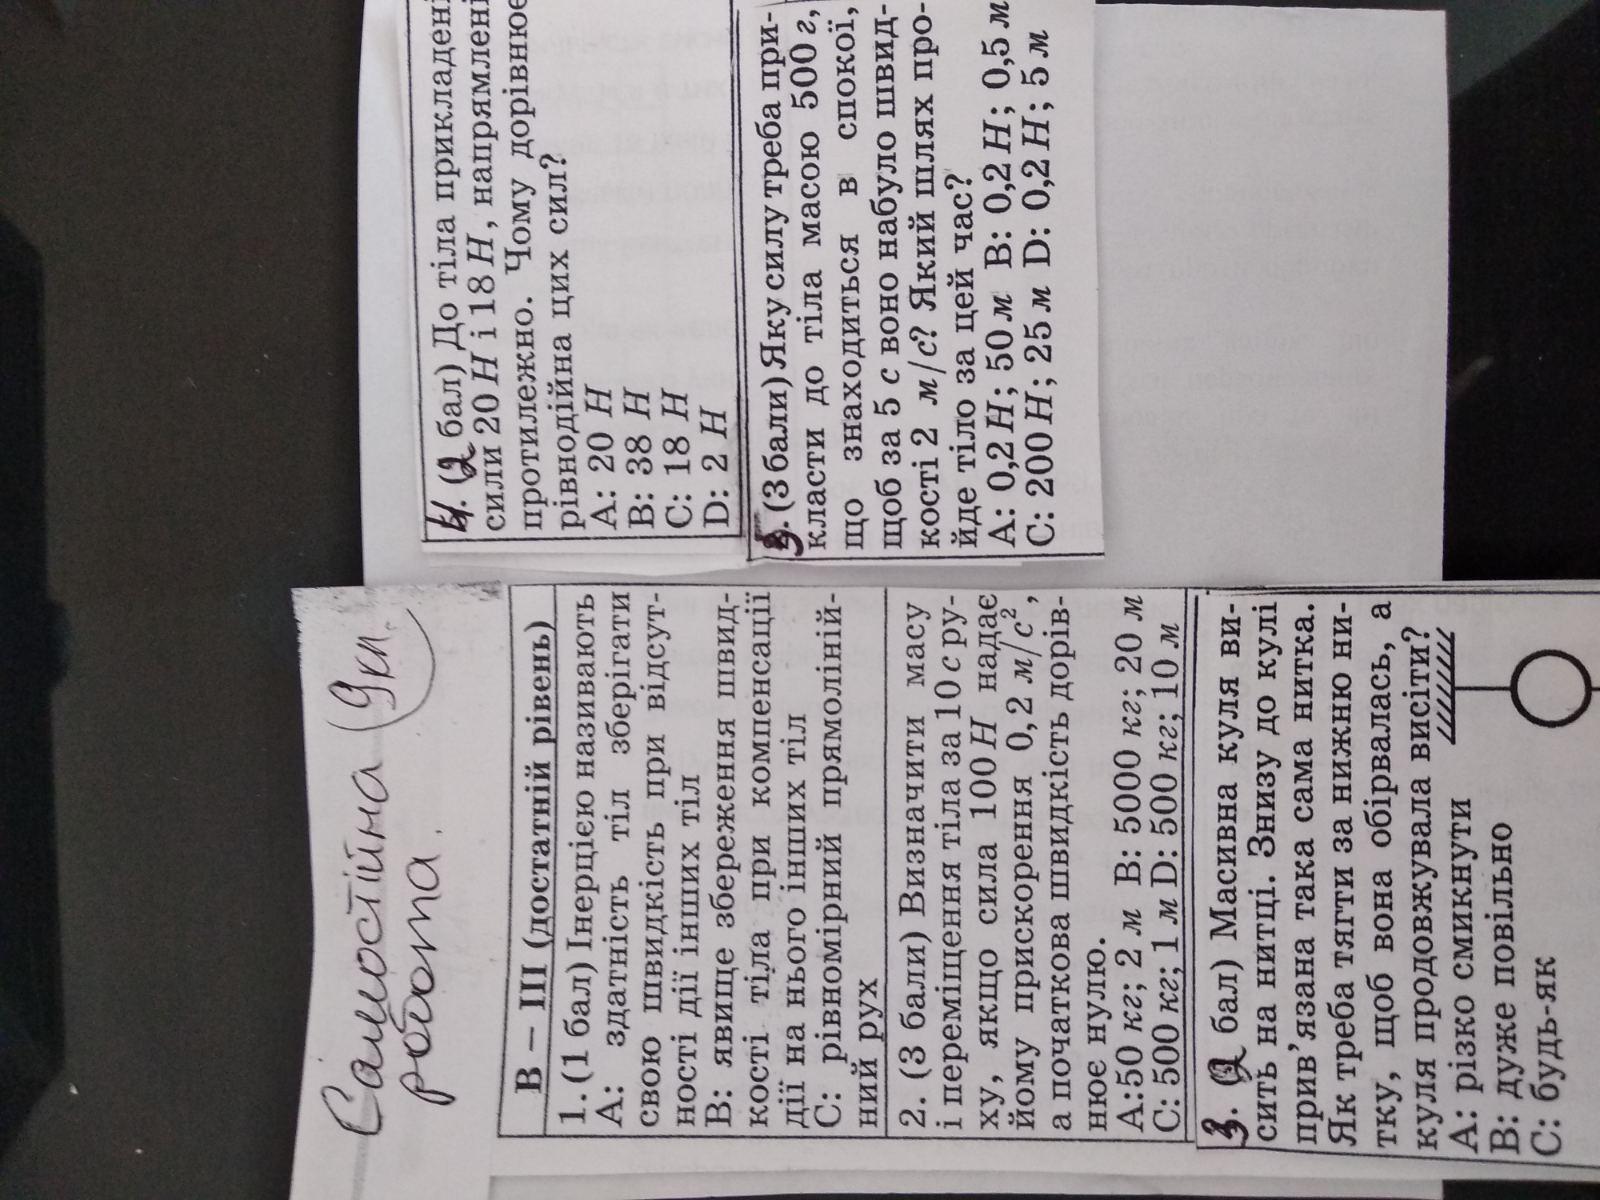 Самостійна
робота.
9кл.
В – III (достатній рівень)
1. (1 бал) Інерцією називають
А: здатність тіл зберігати
свою швидкість при відсут-
ності дії інших тіл
В: явище збереження швид-
кості тіла при компенсації
дії на нього інших тіл
С: рівномірний прямоліній-
ний рух
2. (3 бали) Визначити масу
і переміщення тіла за 10 с ру-
ху, якщо сила 100 Н надає
йому прискорення 0,2 м/с²,
а початкова швидкість дорів-
нює нулю.
А:50 кг; 2 м В: 5000 кг; 20 м
С: 500 кг; 1 м D: 500 кг; 10 м
3. (2 бал) Масивна куля ви-
сить на нитці. Знизу до кулі
прив'язана така сама нитка.
Як треба тягти за нижню ни-
тку, щоб вона обірвалась, а
куля продовжувала висіти?
А: різко смикнути
В: дуже повільно
С: будь-як
4. (2 бал) До тіла прикладені
сили 20 Н і 18 Н, напрямлені
протилежно. Чому дорівнює
рівнодійна цих сил?
А: 20 Н
В: 38 Н
С: 18 Н
D: 2 Н
5. (3 бали) Яку силу треба при-
класти до тіла масою 500 г,
що знаходиться в спокої,
щоб за 5 с воно набуло швид-
кості 2 м/с? Який шлях про-
йде тіло за цей час?
А: 0,2 Н; 50 м В: 0,2 Н; 0,5 м
С: 200 Н; 25 м D: 0,2 Н; 5 м